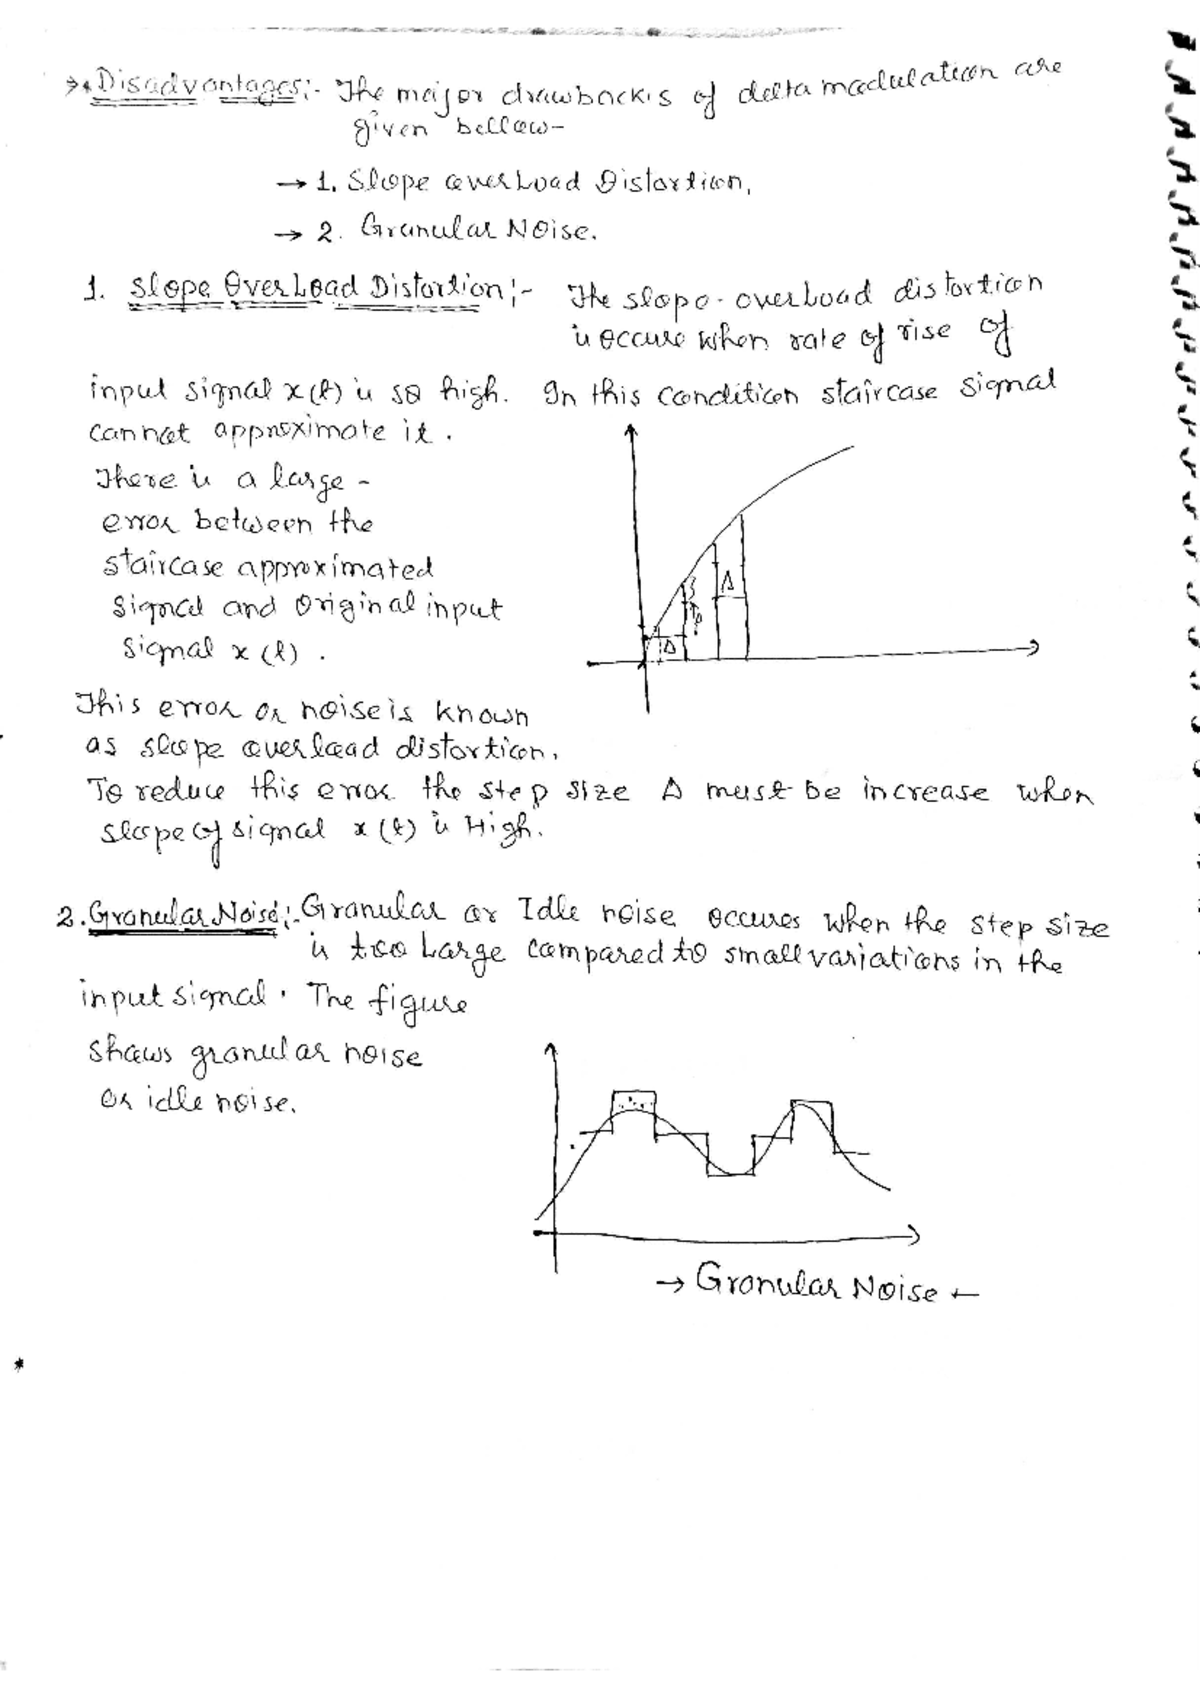 Disadvantages:- The major drawbacks of delta modulation are
given bellow-
→ 1. Slope overload Distortion.
→ 2. Granular Noise.
1. Slope Overload Distortion:- The slope-overload distortion
is occurs when rate of rise of
input signal x(t) is so high. In this condition staircase signal
cannot approximate it.
There is a large -
error between the
staircase approximated
signal and original input
signal x(t).
This error or noise is known
as slope overload distortion.
To reduce this error the step size Δ must be increase when
slope of signal x(t) is High.
Δ
Δ
2. Granular Noise:- Granular or Idle noise occures when the step size
is too Large compared to small variations in the
input signal. The figure
shows granular noise
or idle noise.
→ Granular Noise ←